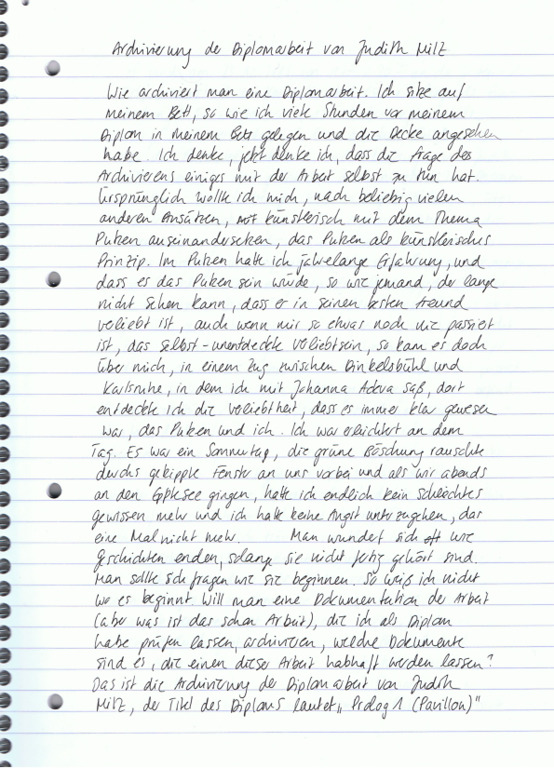 Archivierung der Diplomarbeit von Judith Milz
Wie archiviert man eine Diplomarbeit. Ich sitze auf
meinem Bett, so wie ich viele Stunden vor meinem
Diplom in meinem Bett gelegen und die Decke angesehen
habe. Ich denke, jetzt denke ich, dass die Frage des
Archivierens einiges mit der Arbeit selbst zu tun hat.
Ursprünglich wollte ich mich, nach beliebig vielen
anderen Ansätzen, künstlerisch mit dem Thema
Putzen auseinandersetzen, das Putzen als künstlerisches
Prinzip. Im Putzen hatte ich jahrelange Erfahrung, und
dass es das Putzen sein würde, so wie jemand, der lange
nicht sehen kann, dass er in seinen besten Freund
verliebt ist, auch wenn mir so etwas noch nie passiert
ist, das selbst-unentdeckte Verliebtsein, so kam es doch
über mich, in einem Zug zwischen Dinkelsbühl und
Karlsruhe, in dem ich mit Johanna Adeva saß, dort
entdeckte ich die Verliebtheit, dass es immer klar gewesen
war, das Putzen und ich. Ich war erleichtert an dem
Tag. Es war ein Sommertag, die grüne Böschung rauschte
durchs gekippte Fenster an uns vorbei und als wir abends
an den Epplesee gingen, hatte ich endlich kein schlechtes
Gewissen mehr und ich hatte keine Angst unterzugehen, das
eine Mal nicht mehr. Man wundert sich oft wie
Geschichten enden, solange sie nicht fertig gehört sind.
Man sollte sich fragen wie sie beginnen. So weiß ich nicht
wo es beginnt. Will man eine Dokumentation der Arbeit
(aber was ist das schon Arbeit), die ich als Diplom
habe prüfen lassen, archivieren, welche Dokumente
sind es, die einen dieser Arbeit habhaft werden lassen?
Das ist die Archivierung der Diplomarbeit von Judith
Milz, der Titel des Diploms lautet „Prolog 1 (Pavillon)"